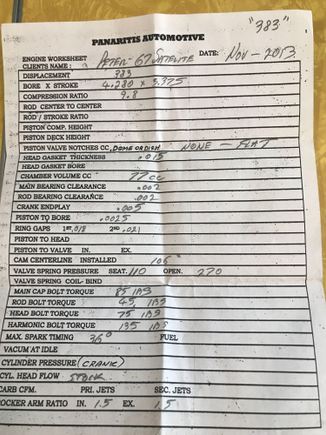 "383"
PANARITIS AUTOMOTIVE
ENGINE WORKSHEET DATE: Nov - 2013
CLIENTS NAME: PETER - 67 SATELITE
DISPLACEMENT 383
BORE X STROKE 4.280 x 3.375
COMPRESSION RATIO 9.8
ROD CENTER TO CENTER
ROD / STROKE RATIO
PISTON COMP. HEIGHT
PISTON DECK HEIGHT
PISTON VALVE NOTCHES CC, DOME OR DISH NONE - FLAT
HEAD GASKET THICKNESS .015
HEAD GASKET BORE
CHAMBER VOLUME CC 77cc
MAIN BEARING CLEARANCE .002
ROD BEARING CLEARANCE .002
CRANK ENDPLAY .005
PISTON TO BORE .0025
RING GAPS 1ST, .018 2ND .021
PISTON TO HEAD
PISTON TO VALVE IN. EX.
CAM CENTERLINE INSTALLED 106°
VALVE SPRING PRESSURE SEAT. 110 OPEN. 270
VALVE SPRING COIL- BIND
MAIN CAP BOLT TORQUE 85 lBS
ROD BOLT TORQUE 45, lBS
HEAD BOLT TORQUE 75 lBS
HARMONIC BOLT TORQUE 135 lBS
MAX. SPARK TIMING 36° FUEL
VACUM AT IDLE
CYLINDER PRESSURE (CRANK)
CYL. HEAD FLOW STOCK
CARB CFM. PRI. JETS SEC. JETS
ROCKER ARM RATIO IN. 1.5 EX. 1.5